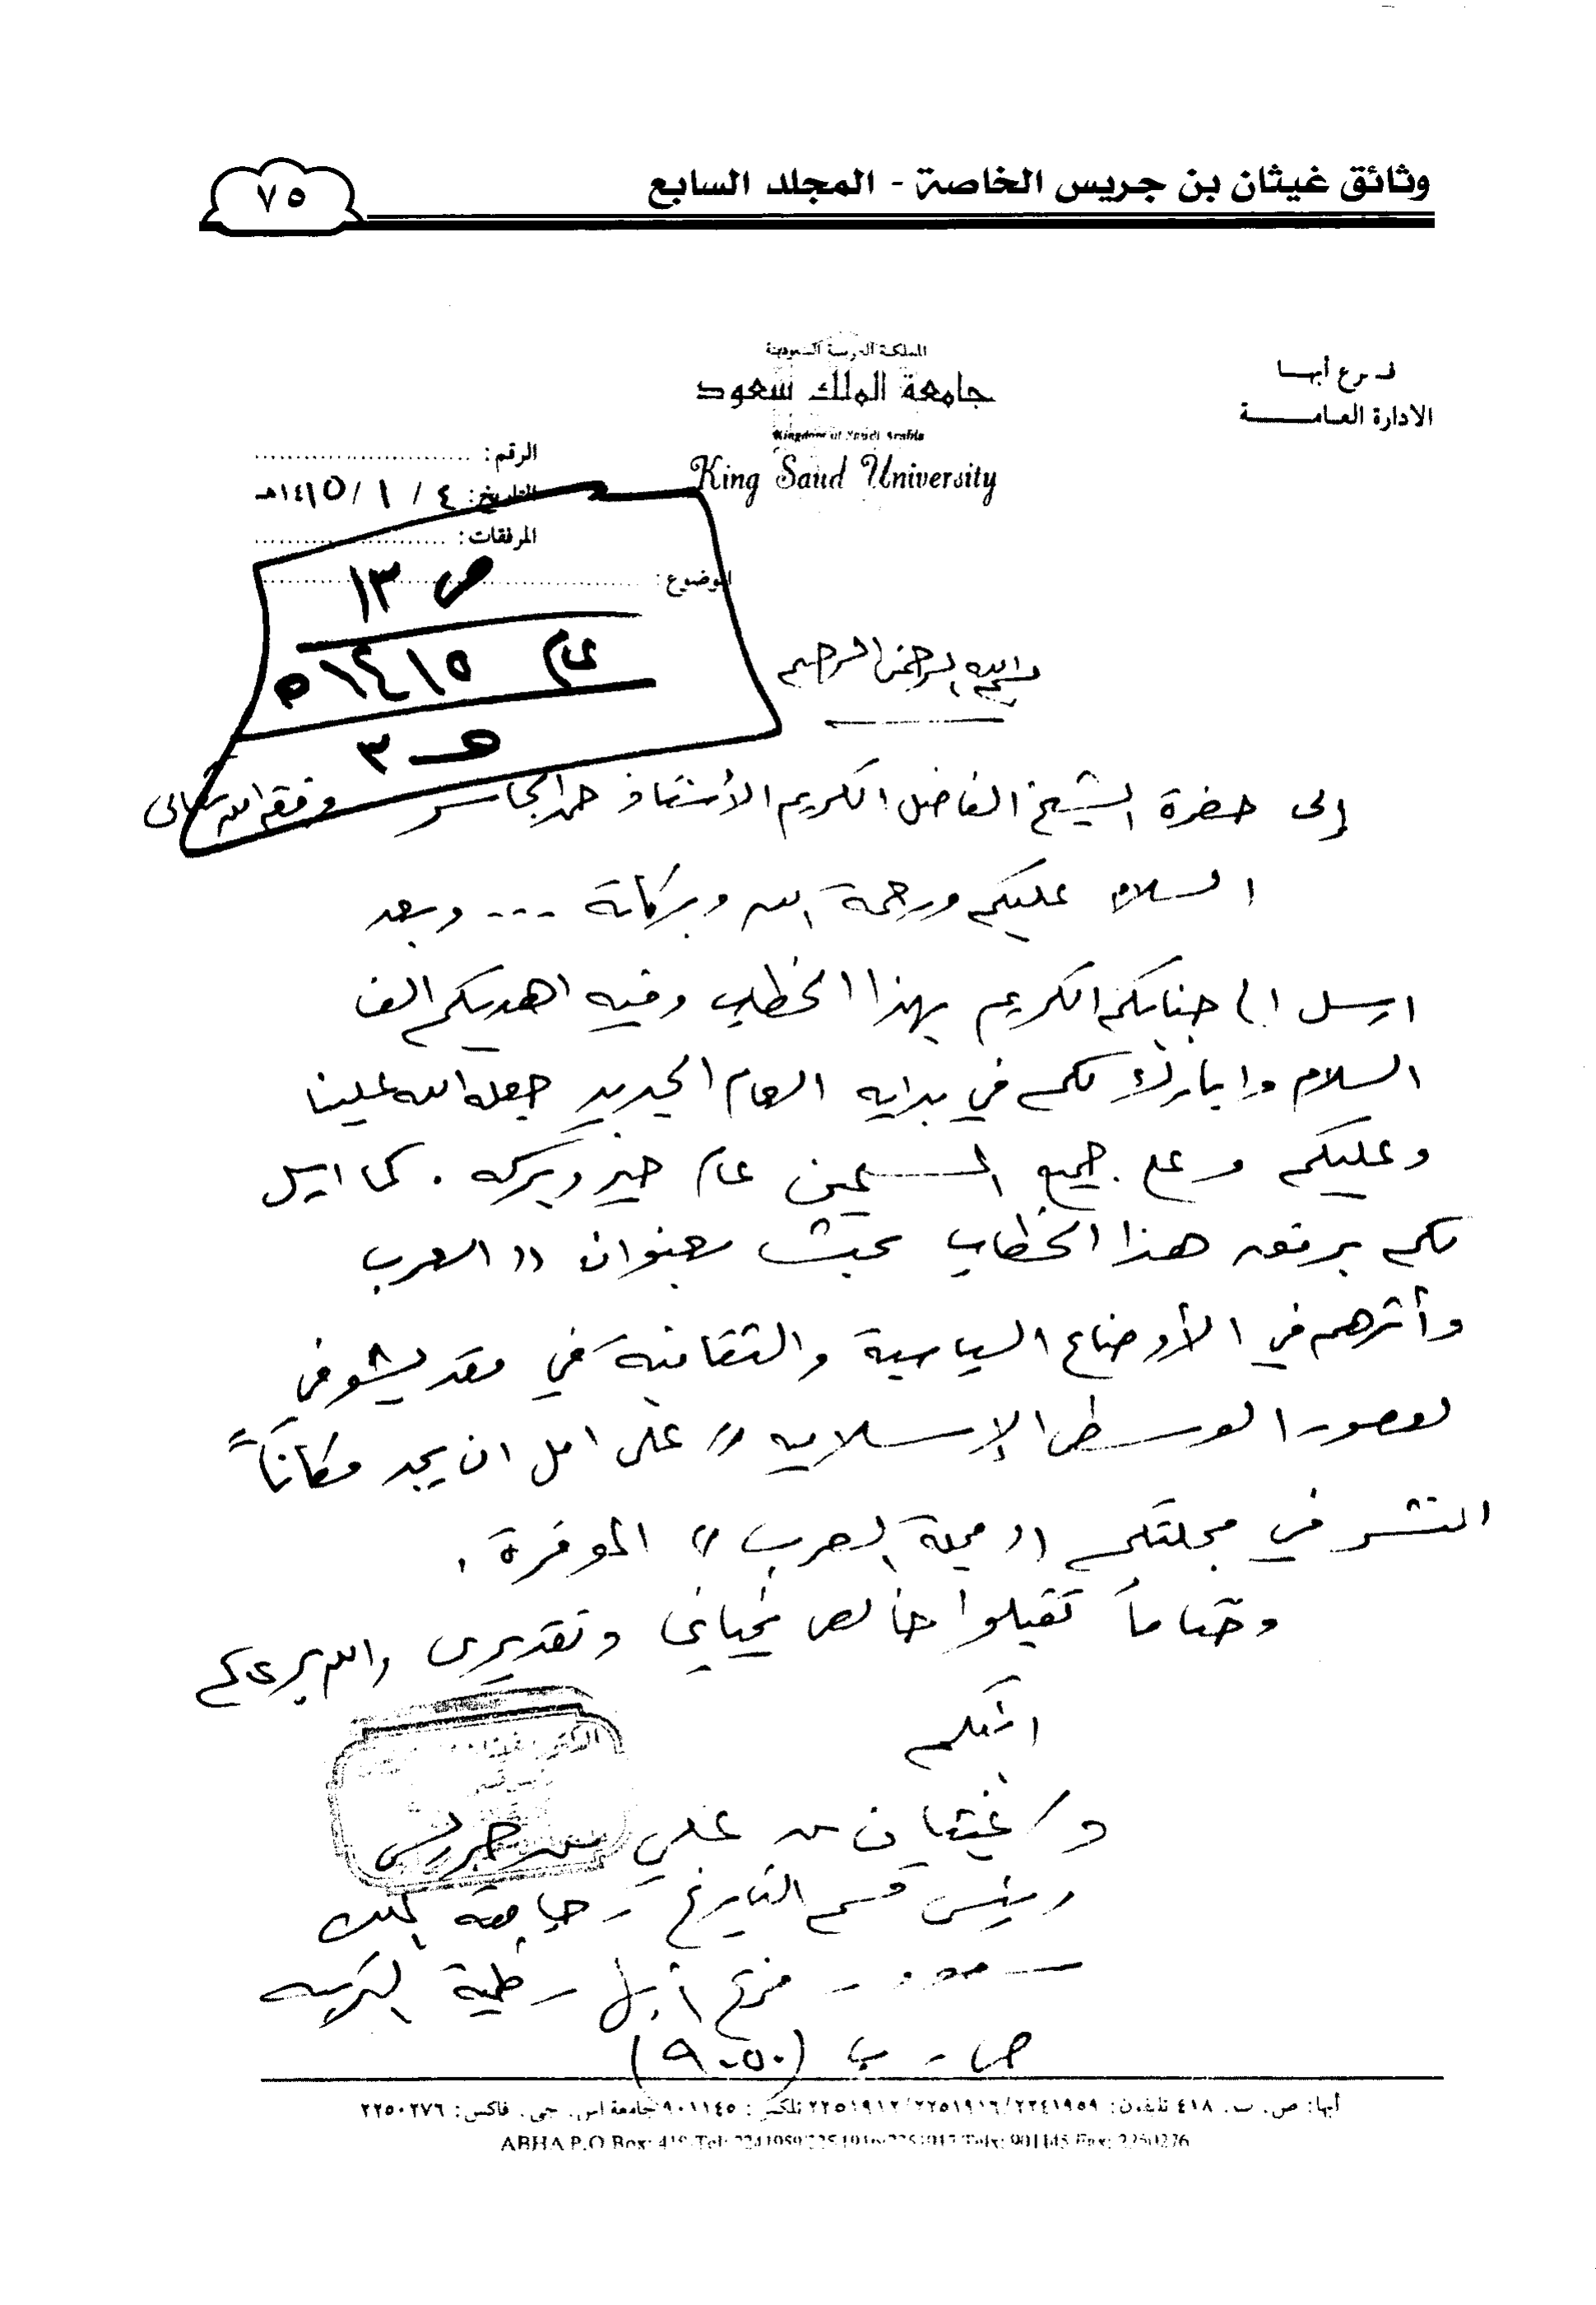 وثائق غيثان بن جريس الخاصة - المجلد السابع
٧٥
المملكة العربية السعودية
جامعة الملك سعود
Kingdom of Saudi Arabia
King Saud University
فرع أبها
الادارة العامة
الرقم:
التاريخ: ٤ / ١ / ١٤١٥هـ
المرفقات:
الموضوع:
ص ١٣
عام ١٤١٥هـ
هـ ٣
بسم الله الرحمن الرحيم
إلى حضرة الشيخ الفاضل الكريم الأستاذ حمد الجاسر وفقه الله تعالى
السلام عليكم ورحمة الله وبركاته --- وبعد
ارسل الى جنابكم الكريم بهذا الخطاب وفيه اهديكم الف
السلام وابارك لكم في بداية العام الجديد جعله الله علينا
وعليكم وعلى جميع المسلمين عام خير وبركه . كما ارسل
لكم برفقه هذا الخطاب بحث بعنوان (( العرب
وأثرهم في الأوضاع السياسية والثقافية في مقديشو في
العصور الوسطى الإسلاميه )) على امل ان يجد مكاناً
النشر في مجلتكم (( مجلة العرب )) الموقرة .
وختاماً تقبلوا خالص تحياتي وتقديري والله يرعاكم
د/ غيثان بن علي بن جريس
رئيس قسم التاريخ - جامعة الملك
سعود - فرع أبها - كلية التربيه
ص . ب (٩٠٥٠)
أبها: ص. ب. ٤١٨ تليفون: ٢٢٤١٩٥٩/٢٢٥١٩١٦/٢٢٥١٩١٢ تلكس: ٩٠١١٤٥ جامعة اس. جي. فاكس: ٢٢٥٠٢٧٦
ABHA P.O Box: 418 Tel: 2241959/2251916/2251912 Telx: 901145 Fax: 2250276